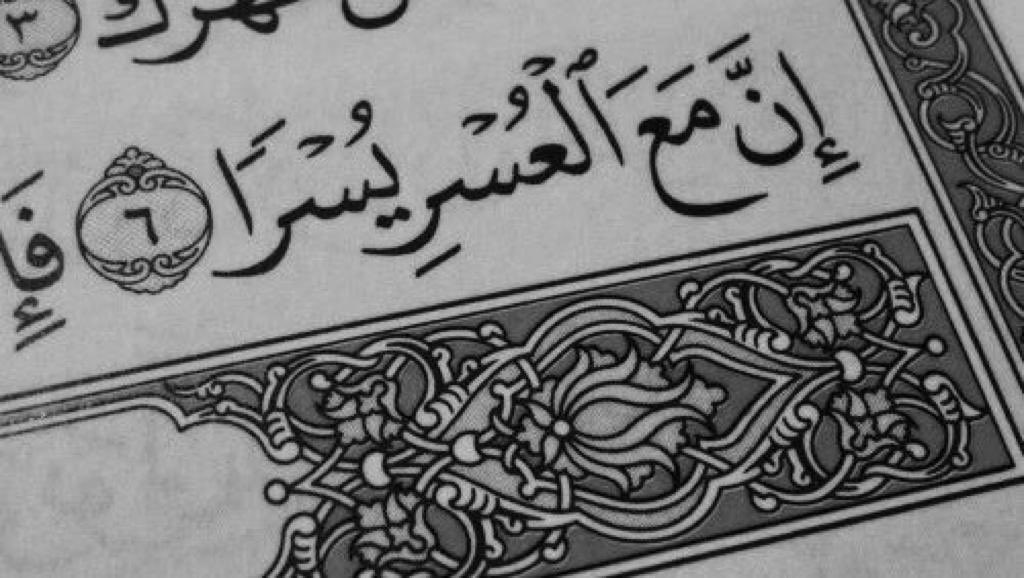 ظَهْرَكَ ٣
إِنَّ مَعَ ٱلْعُسْرِ يُسْرًا ٦ فَإِ